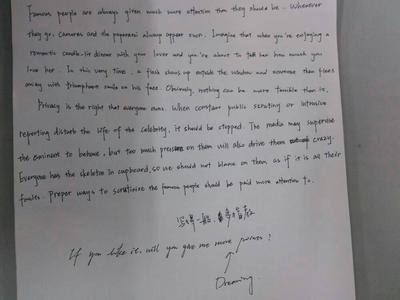 Famous people are always given much more attention than they should be. Whenever
they go, cameras and the paparazzi always appear soon. Imagine that when you're enjoying a
romantic candle-lit dinner with your lover and you're about to tell her how much you
love her. In this very time, a flash shows up outside the window and someone then flees
away with triumphant smile on his face. Obviously, nothing can be more terrible than it.
Privacy is the right that everyone owns. When constant public scrutiny or intrusive
reporting disturb the life of the celebrity, it should be stopped. The media may supervise
the eminent to behave, but too much pressure on them will also drive them crazy.
Everyone has the skeleton in cupboard, so we should not blame on them as if it is all their
faults. Proper ways to scrutinize the famous people should be paid more attention to.
写得一般,
If you like it, will you give me more points?
Dreaming.